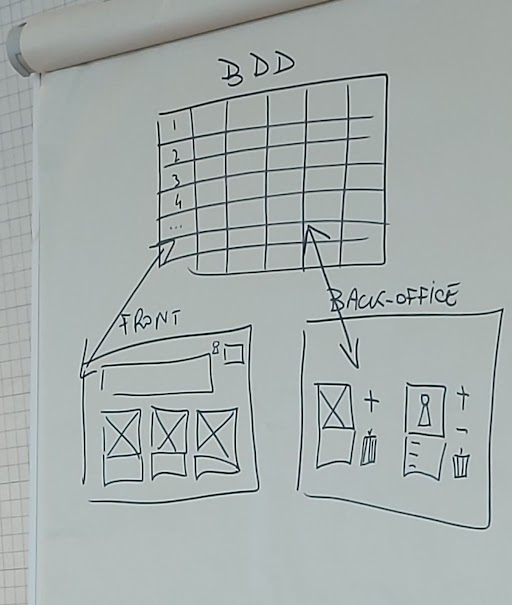 BDD
1
2
3
4
...
FRONT
BACK-OFFICE
8
+
+
-